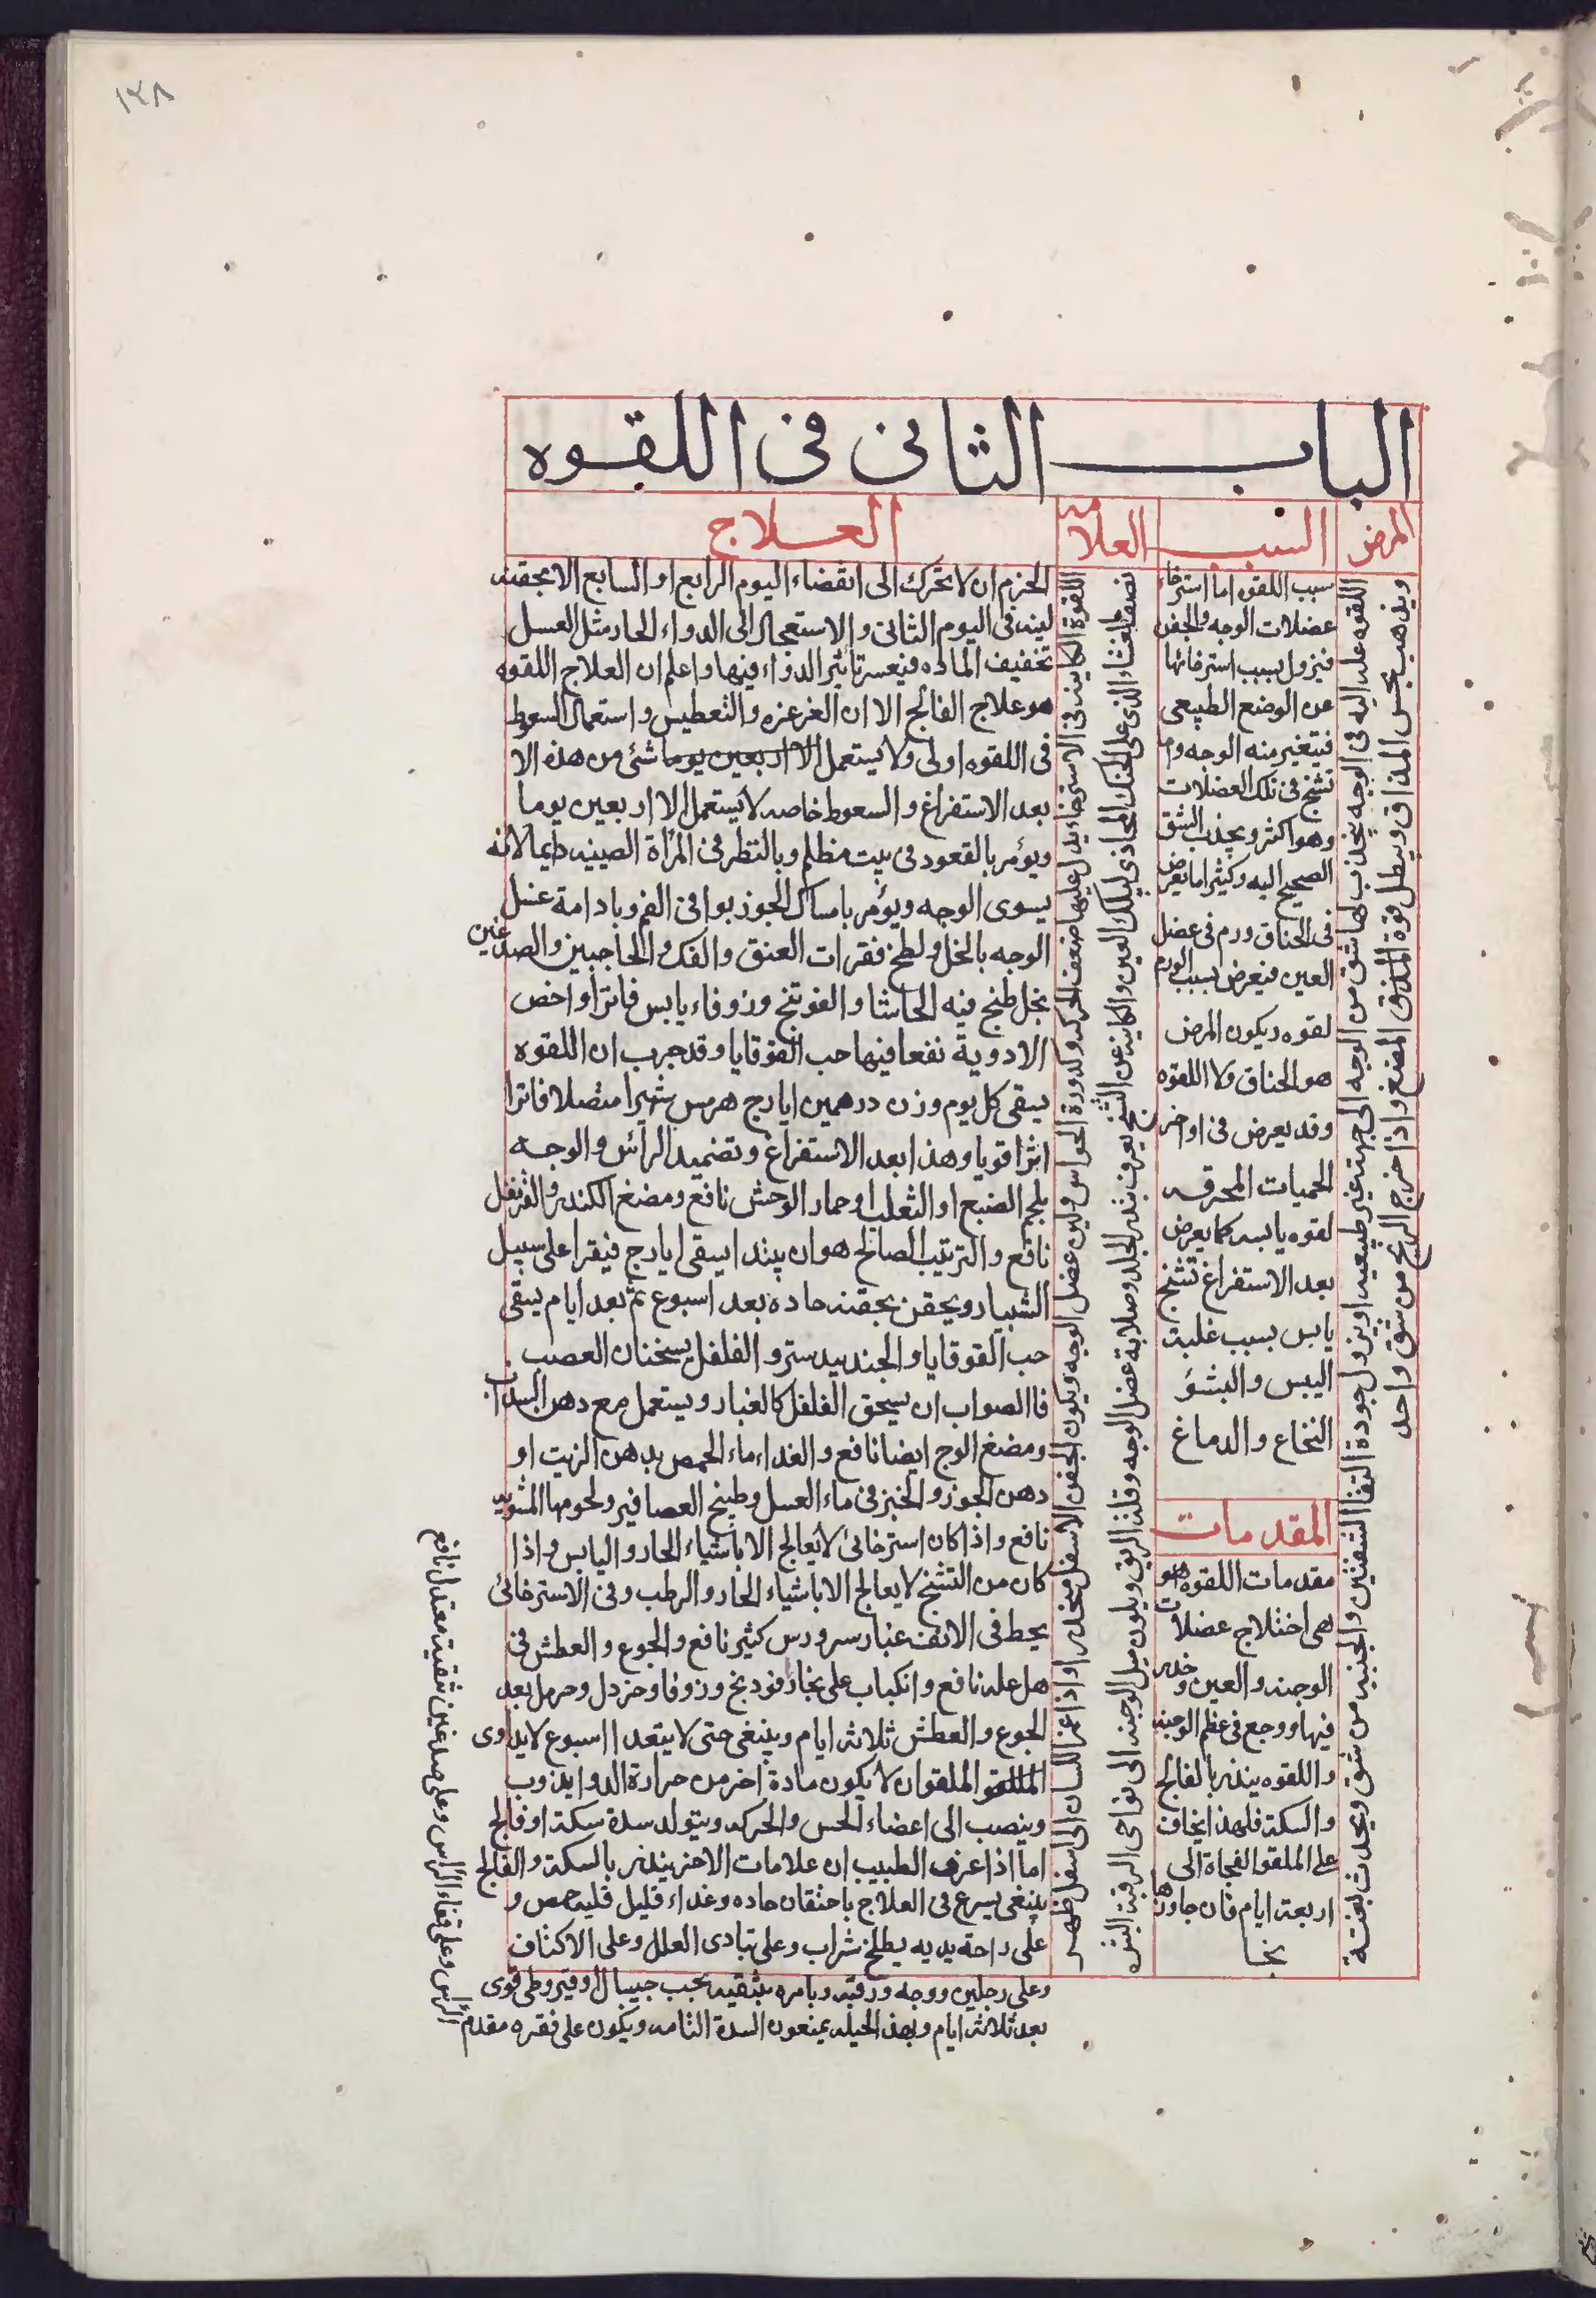 ١٢٨
الباب الثانى فى اللقوه
المرض
السبب
العلامه
العلاج
اللقوه علة اليه فى الوجه يجذب لها شق من الوجه الى جهة غير طبيعيه او يزول جودة التقا الشفتين والجنبيه من شق ويحدث بغتة
ويذهب بحس المذاق ويبطل قوة المذق المضغ واذا خرج الريح من شق واحد
سبب اللقوه اما استرخاء
عضلات الوجه والجفن
فيزول بسبب استرخائها
عن الوضع الطبيعى
فيتغير منه الوجه واما
تشنج فى تلك العضلات
وهو اكثر ويجذب الشق
الصحيح اليه وكثيرا ما يعرض
فى الخناق ورم فى عضل
العين فيعرض بسبب الورم
لقوه ويكون المرض
هو الخناق ولا اللقوه
وقد يعرض فى اواخر
الحميات المحرقه
لقوه يابسه كما يعرض
بعد الاستفراغ تشنج
يابس بسبب غلبة
اليبس والبشؤ
النخاع والدماغ
المقدمات
مقدمات اللقوه هو
هى اختلاج عضلات
الوجنه والعين وخدر
فيها ووجع فى عظم الوجنه
واللقوه ينذر بالفالج
والسكتة فلهذا يخاف
على الملقو الفجاة الى
اربعة ايام فان جاوزها
نجا
اللقوة الكاينه فى الاسترخاء يدل عليها ضعف الحركه وكدورة الحواس ولين عضل الوجه ويكون الجفن الاسفل منحدر او اذا غمز اللسان الى اسفل ظهر
نصف الغشاء الذى على الحنك المحاذى لتلك العين والكاينه عن التشنج يعرف بتمدد الجلد وصلابة عضل الوجه وقلة الريق ويكون ميل الوجنه الى نواحى الرقبه البشره
الحزم ان لا يحرك الى انقضاء اليوم الرابع او السابع الا بحقنه
لينه فى اليوم الثانى والاستعجال الى الدواء الحار مثل العسل
تخفيف الماده فيعسر تاثير الدواء فيها واعلم ان العلاج اللقوه
هو علاج الفالج الا ان الغرغره والتعطيس واستعمال السعوط
فى اللقوه اولى ولا يستعمل الا اربعين يوما شئ من هذه الا
بعد الاستفراغ والسعوط خاصه لا يستعمل الا اربعين يوما
ويؤمر بالقعود فى بيت مظلم وبالنظر فى المرأة الصينيه دايما لانه
يسوى الوجه ويؤمر بامساك الجوز بوا فى الفم وبادامة غسل
الوجه بالخل ولطخ فقرات العنق والفك والحاجبين والصدغين
بخل طبخ فيه الحاشا والفوتنج وزوفاء يابس فاترا واخص
الادوية نفعا فيها حب القوقايا وقد جرب ان اللقوه
يسقى كل يوم وزن درهمين ايارج هرمس شهرا متصلا فاترا
اثرا قويا وهذا بعد الاستفراغ وتضميد الرأس والوجه
بلحم الضبع او الثعلب او حمار الوحش نافع ومضغ الكندر والقرنفل
نافع والترتيب الصالح هو ان يبتدا يسقى ايارج فيقرا على سبيل
الشبيار ويحقن بحقنه حاده بعد اسبوع ثم بعد ايام يسقى
حب القوقايا والجندبيدستر والفلفل يسخنان العصب
فا الصواب ان يسحق الفلفل كالغبار ويستعمل مع دهن السداب
ومضغ الوج ايضا نافع والغداء ماء الحمص بدهن الزيت او
دهن الجوز والخبز فى ماء العسل وطبيخ العصافير ولحومها المشويه
نافع واذا كان استرخائى لا يعالج الا باشياء الحار واليابس واذا
كان من التشنج لا يعالج الا باشياء الحار والرطب وفى الاسترخائى
يحط فى الانف غبار سرورس كثير نافع والجوع والعطش فى
هل عله نافع وانكباب على بخار فودنج وزوفا وخردل وحرمل بعد
الجوع والعطش ثلاثة ايام وينبغى حتى لا يتعدا اسبوع لا يداوى
الملقو الملقو ان لا يكون مادة اخر من حرارة الدوا يذوب
وينصب الى اعضاء الحس والحركه ويتولد سدة سكتة او فالج
اما اذا عرف الطبيب ان علامات الاخر ينذر بالسكتة والفالج
ينبغى يسرع فى العلاج باحتقان حاده وغداء قليل قليه حمص و
على راحة يديه يطلخ شراب وعلى تبادى العلل وعلى الاكتاف
وعلى رجلين ووجه ورقبه ويامره بتنقيه بحب جيبال او قيروطى قوى
بعد ثلاثة ايام وبهذ الحيله يمنعون السدة التامه ويكون على فقره مقدم
الرأس وعلى قفاء الرأس وعلى صدغين تنقية معتدل نافع